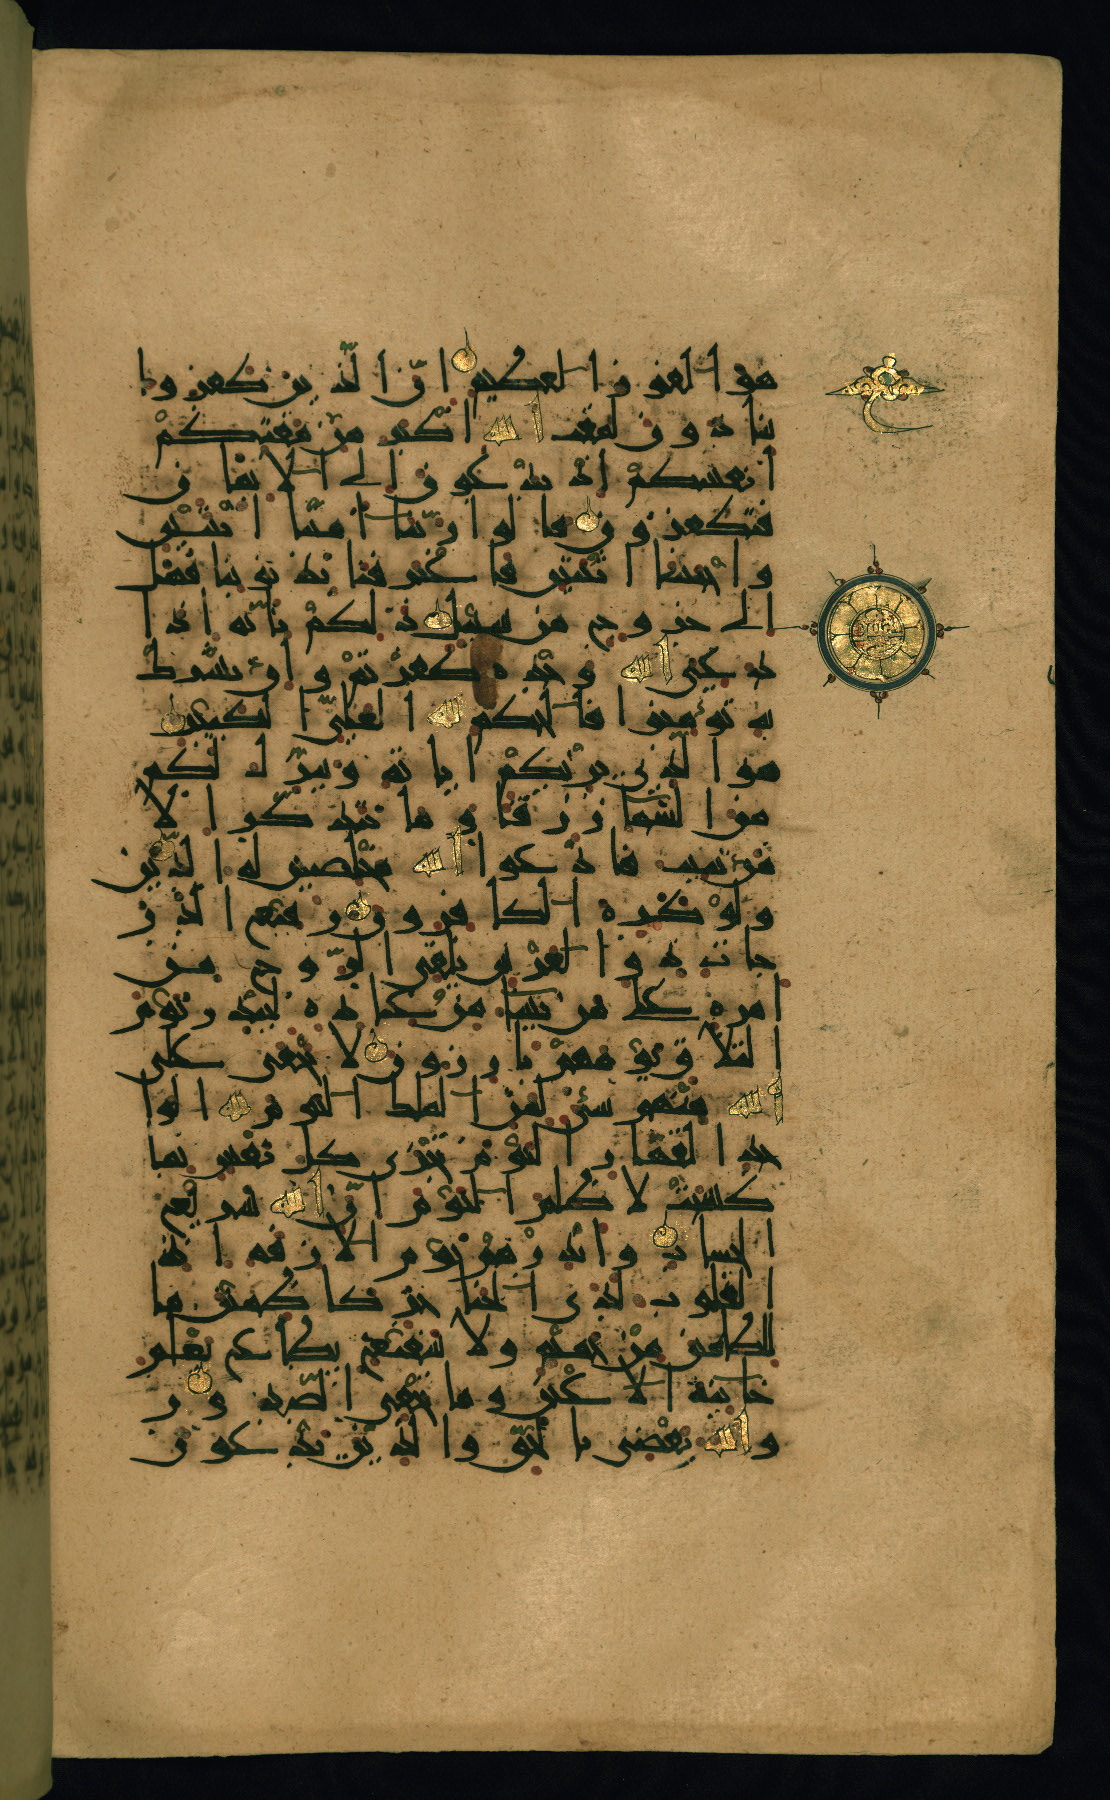 هو الفوز العظيم ان الذين كفروا
ينادون لمقت الله اكبر من مقتكم
انفسكم اذ تدعون الى الايمان
فتكفرون قالوا ربّنا امتّنا اثنتين
واحييتنا اثنتين فاعترفنا بذنوبنا فهل
الى خروج من سبيل ذلكم بانّه اذا
دعي الله وحده كفرتم وان يشرك
به تؤمنوا فالحكم لله العليّ الكبير
هو الّذي يريكم اياته وينزّل لكم
من السّماء رزقا وما يتذكّر الا
من ينيب فادعوا الله مخلصين له الدّين
ولو كره الكافرون رفيع الدّر
جات ذو العرش يلقي الرّوح من
امره على من يشاء من عباده لينذر يوم
التلاق يوم هم بارزون لا يخفى على
الله منهم شيء لمن الملك اليوم لله الوا
حد القهّار اليوم تجزى كل نفس بما
كسبت لا ظلم اليوم انّ الله سريع
الحساب وانذرهم يوم الازفة اذ
القلوب لدى الحناجر كاظمين ما
للظالمين من حميم ولا شفيع يطاع يعلم
خائنة الاعين وما تخفي الصّدور
والله يقضي بالحقّ والّذين يدعون